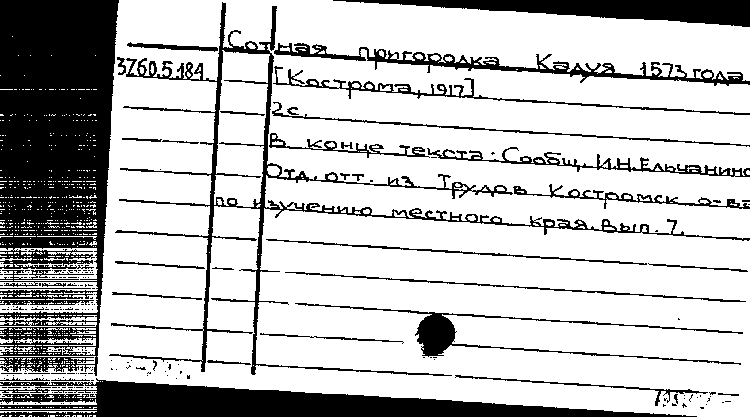 Сотная пригородка Кадуя 1573 года
3760.5.184. [Кострома, 1917].
2с.
В конце текста: Сообщ. И.Н.Ельчанино
Отд. отт. из Трудов Костромск о-ва
по изучению местного края. Вып. 7.